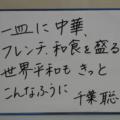 一皿に中華、
フレンチ、和食を盛る
世界平和も きっと
こんなふうに
千葉 聡